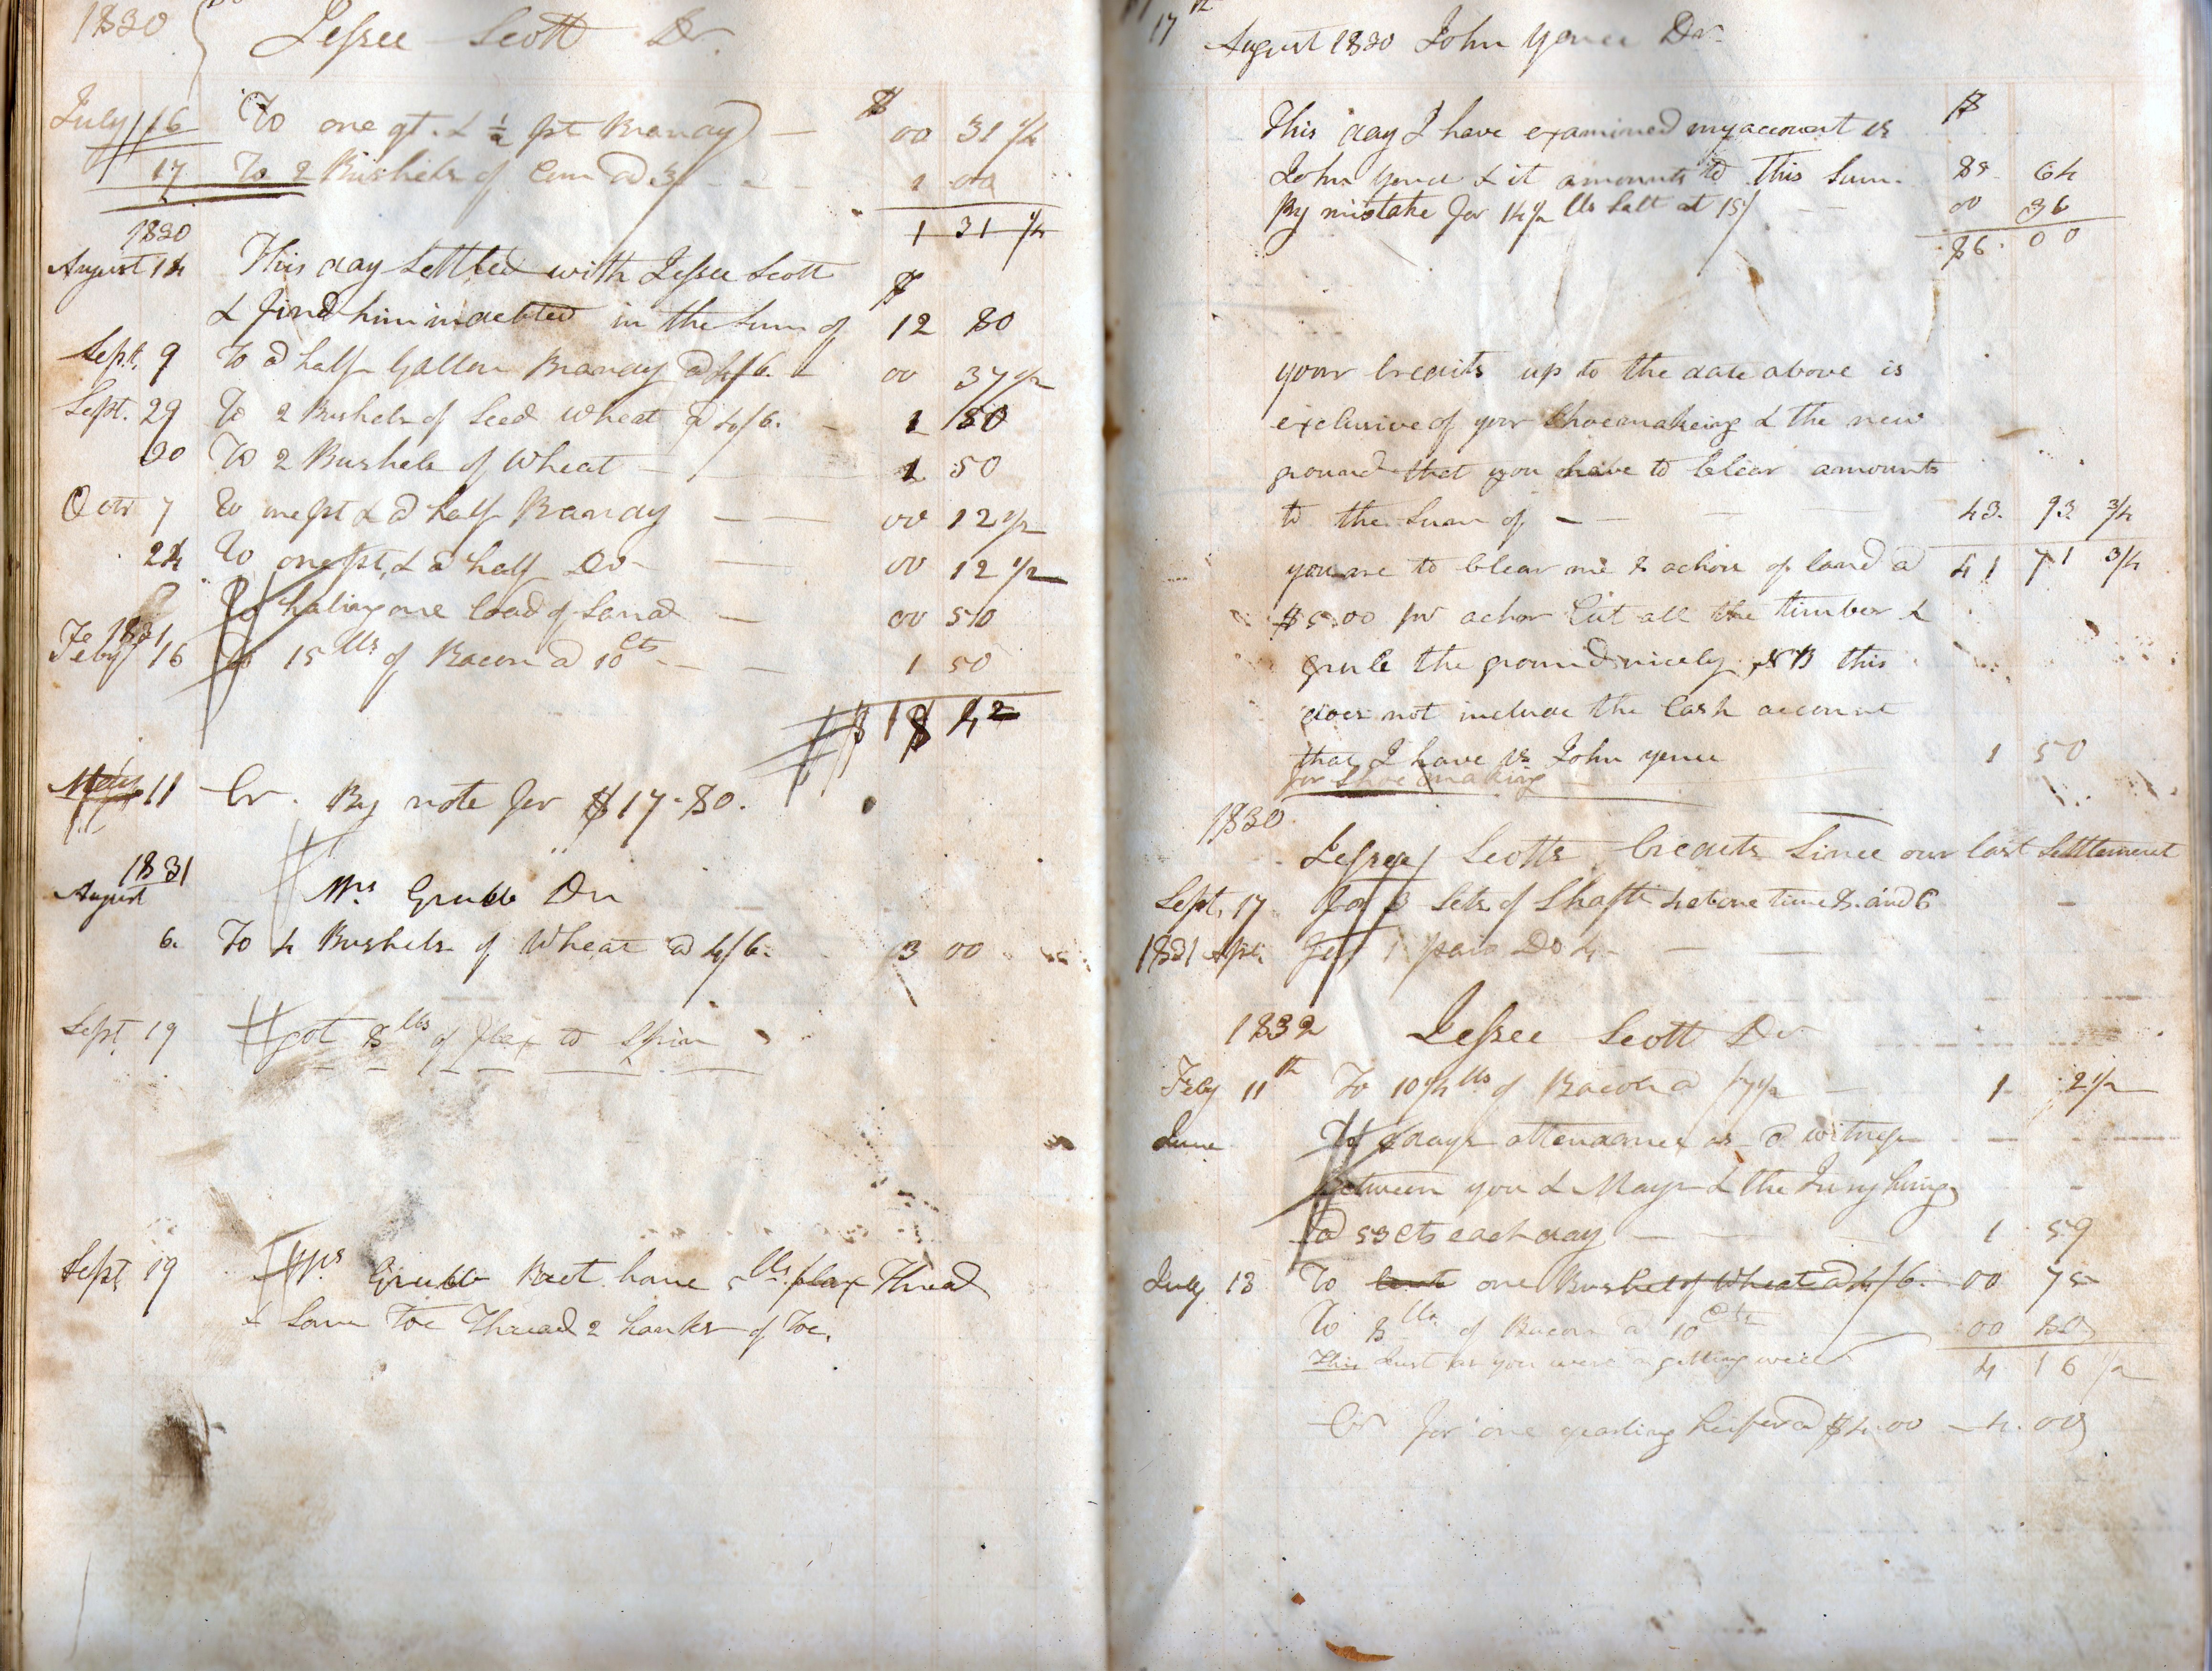 1830 Jessee Scott Dr.
$
July 16 To one qt. & ½ pt Brandy — 00 31 ¼
17 To 2 Bushels of Corn @ 3/ - - - 1 00
1 31 ¼
1830
August 14 This day Settled with Jessee Scott
$
& find him indebted in the Sum of 12 80
Sept. 9 To a half Gallon Brandy @ 4/6. - 00 37 ½
Sept. 29 To 2 Bushels of Seed Wheat @ 4/6. - 1 50
30 To 2 Bushels of Wheat — 1 50
Octr 7 To one pt & a half Brandy — — 00 12 ½
24 To one pt, & a half Do — 00 12 ½
To haling one load of Sand — 00 50
1831
Feby 16 To 15 lbs of Bacon @ 10 cts - — 1 50
$ 18 42
May 11 Cr. By note for $17-80.
1831
August Mrs Grubb Dr
6. To 4 Bushels of Wheat @ 4/6. 3 00
Sept 19 got 8 lbs of flax to Spin
Sept 19 Mrs Grubb Baet. home 5 lbs. flax Thread
& Som Toe Thread 2 hanks of Toe.
17th August 1830 John Yonce Dr
$
This day I have examined my account vs
John Yonce & it amounts to this Sum. 85 64
By mistake for 14½ lbs Salt at 15/ — 00 36
86. 00
your Credits up to the date above is
exclusive of your Shoemakeing & the new
ground that you have to Clear amounts
to the Sum of - — 43. 93 ¾
you are to Clear me 8 achors of land @ 41 71 ¾
$5.00 pr achor Cut all the timber &
grub the ground nicely NB this
does not include the Cash account
that I have vs John yonce 1 50
for Shoe making
1830
Jessee Scotts Credits Since our last Settlement
Sept, 17 For 3 Sets of Shafts 4 at one time 8. and 6
1831 Apr. For 1 pair Do 4 - —
1832 Jessee Scott Dr
Feby 11th To 10¼ lbs of Bacon @ 7½ — 1 2½
June To 3 days attendance as a witness
Between you & Mays & the Jury hung
@ 53 cts each day — 1 59
July 13 To one Bushel of Wheat @ 4/6. 00 75
To 8 lbs of Bacon @ 10 cts 00 80
This Just as you were a getting well 4 16 ½
Cr for one yearling heifer @ $4.00 — 4.00